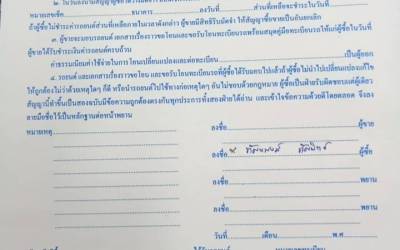 ๒. ในวันลงนามสัญญาผู้ขายได้
หมายเลขเช็ค..............ธนาคาร..............ลงวันที่..............ส่วนที่เหลือจะชำระในวันที่
ถ้าผู้ซื้อไม่ชำระค่ารถยนต์ส่วนที่เหลือภายในเวลาดังกล่าว ผู้ขายมีสิทธิ์ริบมัดจำ ให้สัญญาซื้อขายเป็นอันยกเลิก
๓. ผู้ขายจะมอบรถยนต์ เอกสารเรื่องราวขอโอนและขอรับโอนทะเบียนรถพร้อมสมุดคู่มือทะเบียนรถให้แก่ผู้ซื้อในวัน
ผู้ขายได้รับชำระเงินค่ารถยนต์ครบถ้วน
ค่าธรรมเนียมค่าใช้จ่ายในการ โอนเปลี่ยนแปลงและต่อทะเบียน..............เป็นผู้ออก
๔. รถยนต์ และเอกสารเรื่องราวขอโอน และขอรับโอนทะเบียนรถที่ผู้ซื้อได้รับมอบไปแล้วถ้าผู้ซื้อไม่นำไปเปลี่ยนแปลงแก้ไข
ให้ถูกต้องไม่ว่าด้วยเหตุใดๆ ก็ดี หรือนำรถยนต์ไปใช้ทางก่อเหตุใดๆ อันไม่ชอบด้วยกฎหมาย ผู้ซื้อเป็นฝ่ายรับผิดชอบแต่ผู้เดียว
สัญญานี้ทำขึ้นเป็นสองฉบับมีข้อความถูกต้องตรงกันทุกประการทั้งสองฝ่ายได้อ่าน และเข้าใจข้อความดีโดยตลอด จึงลง
ลายมือชื่อไว้เป็นหลักฐานต่อหน้าพยาน
หมายเหตุ
ลงชื่อ..............ผู้ขาย
ลงชื่อ..............ผู้ซื้อ
ลงชื่อ..............พยาน
ลงชื่อ..............พยาน
วันที่..............เดือน..............พ.ศ.